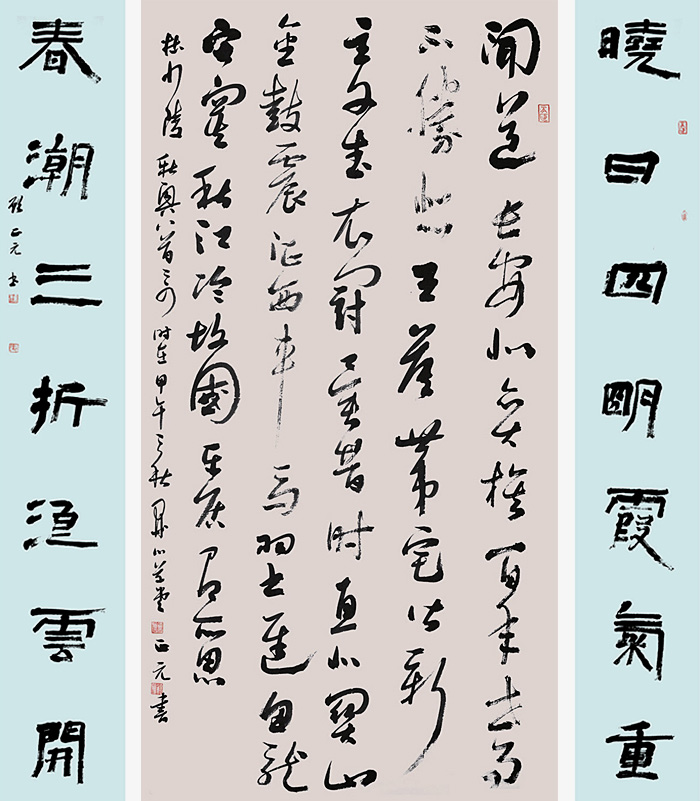 曉日四明霞氣重
聞道長安似奕棋百年世事
不勝悲王侯第宅皆新
主文武衣冠異昔時直北關山
金鼓震征西車馬羽書遲魚龍
寂寞秋江冷故國平居有所思
杜少陵秋興八首之四 时在甲午之秋 正元書
春潮三折浪雲開
正元書